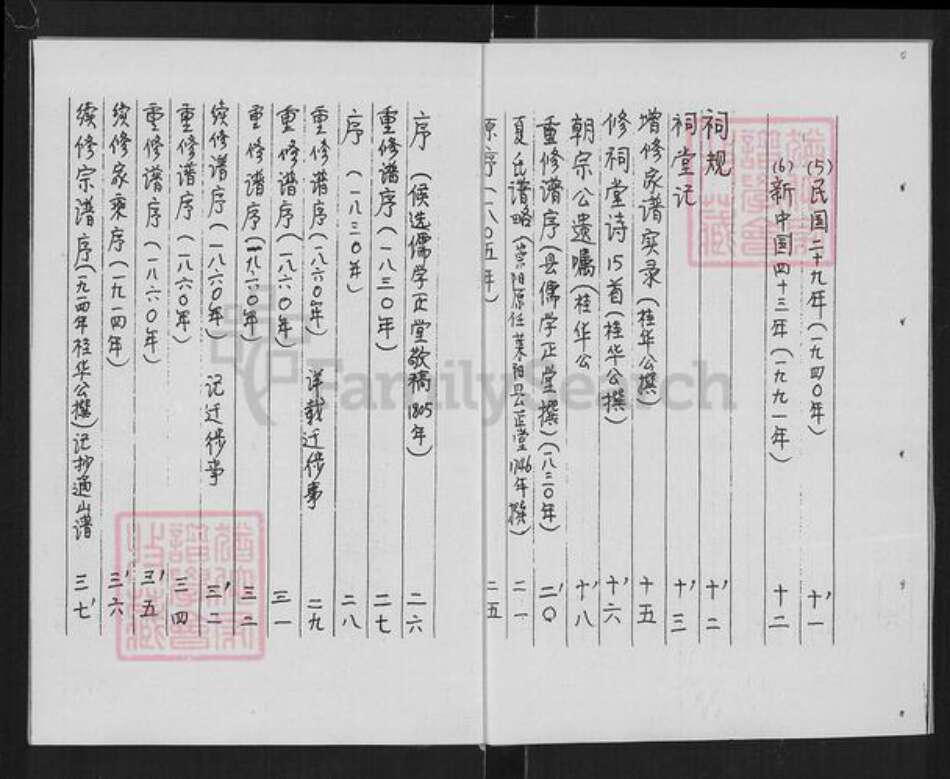 (5)民国二十九年(一九四〇年) 十一
(6)新中国四十三年(一九九一年) 十二
祠规 十二
祠堂记 十三
增修家谱实录(桂华公撰) 十五
修祠堂诗15首(桂华公撰) 十六
朝宗公遗嘱(桂华公 十八
重修谱序(县儒学正堂撰)(一八三〇年) 二〇
夏氏谱略(崇阳原任莱阳县正堂1746年撰) 二一
原序(一八〇五年) 二五
序(候选儒学正堂敬稿1805年) 二六
重修谱序(一八三〇年) 二七
序(一八三〇年) 二八
重修谱序(一八六〇年) 详载迁徙事 二九
重修谱序(一八六〇年) 三一
重修谱序(一八六〇年) 三二
续修谱序(一八六〇年) 记迁徙事 三二
重修谱序(一八六〇年) 三四
重修谱序(一八六〇年) 三五
续修家乘序(一九一四年) 三六
续修宗谱序(一九一四年桂华公撰)记抄通山谱 三七
FamilySearch